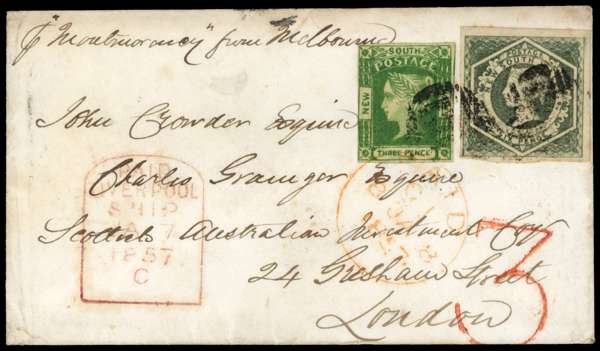 p "Montmorency" from Melbourne
SOUTH
POSTAGE
NEW
THREE PENCE
POSTAGE
SOUTH
John Crowder Esquire
Charles Grainger Esquire
Scottish Australian Investment Coy
24 Gresham Street
London
PAID
LIVERPOOL
SHIP
1857
C
3